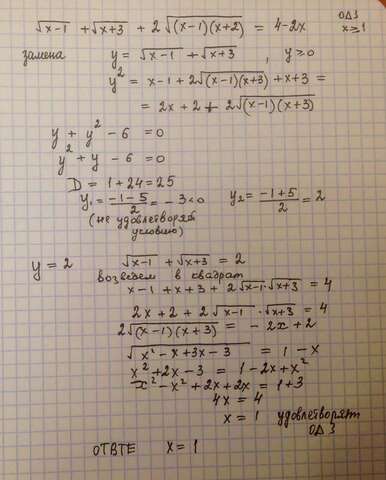 √x-1 + √x+3 + 2√(x-1)(x+2) = 4-2x ОДЗ x≥1
замена y = √x-1 + √x+3 , y≥0
y² = x-1 + 2√(x-1)(x+3) + x+3 =
= 2x + 2 + 2√(x-1)(x+3)
y + y² - 6 = 0
y² + y - 6 = 0
D = 1+24 = 25
y₁ = (-1-5)/2 = -3 < 0 y₂ = (-1+5)/2 = 2
(не удовлетворяет
условию)
y = 2 √x-1 + √x+3 = 2
возведем в квадрат
x-1 + x+3 + 2√x-1 · √x+3 = 4
2x + 2 + 2√x-1 · √x+3 = 4
2√(x-1)(x+3) = -2x + 2
√x² - x + 3x - 3 = 1 - x
x² + 2x - 3 = 1 - 2x + x²
x² - x² + 2x + 2x = 1+3
4x = 4
x = 1 удовлетворяет
ОДЗ
ОТВТЕ x = 1